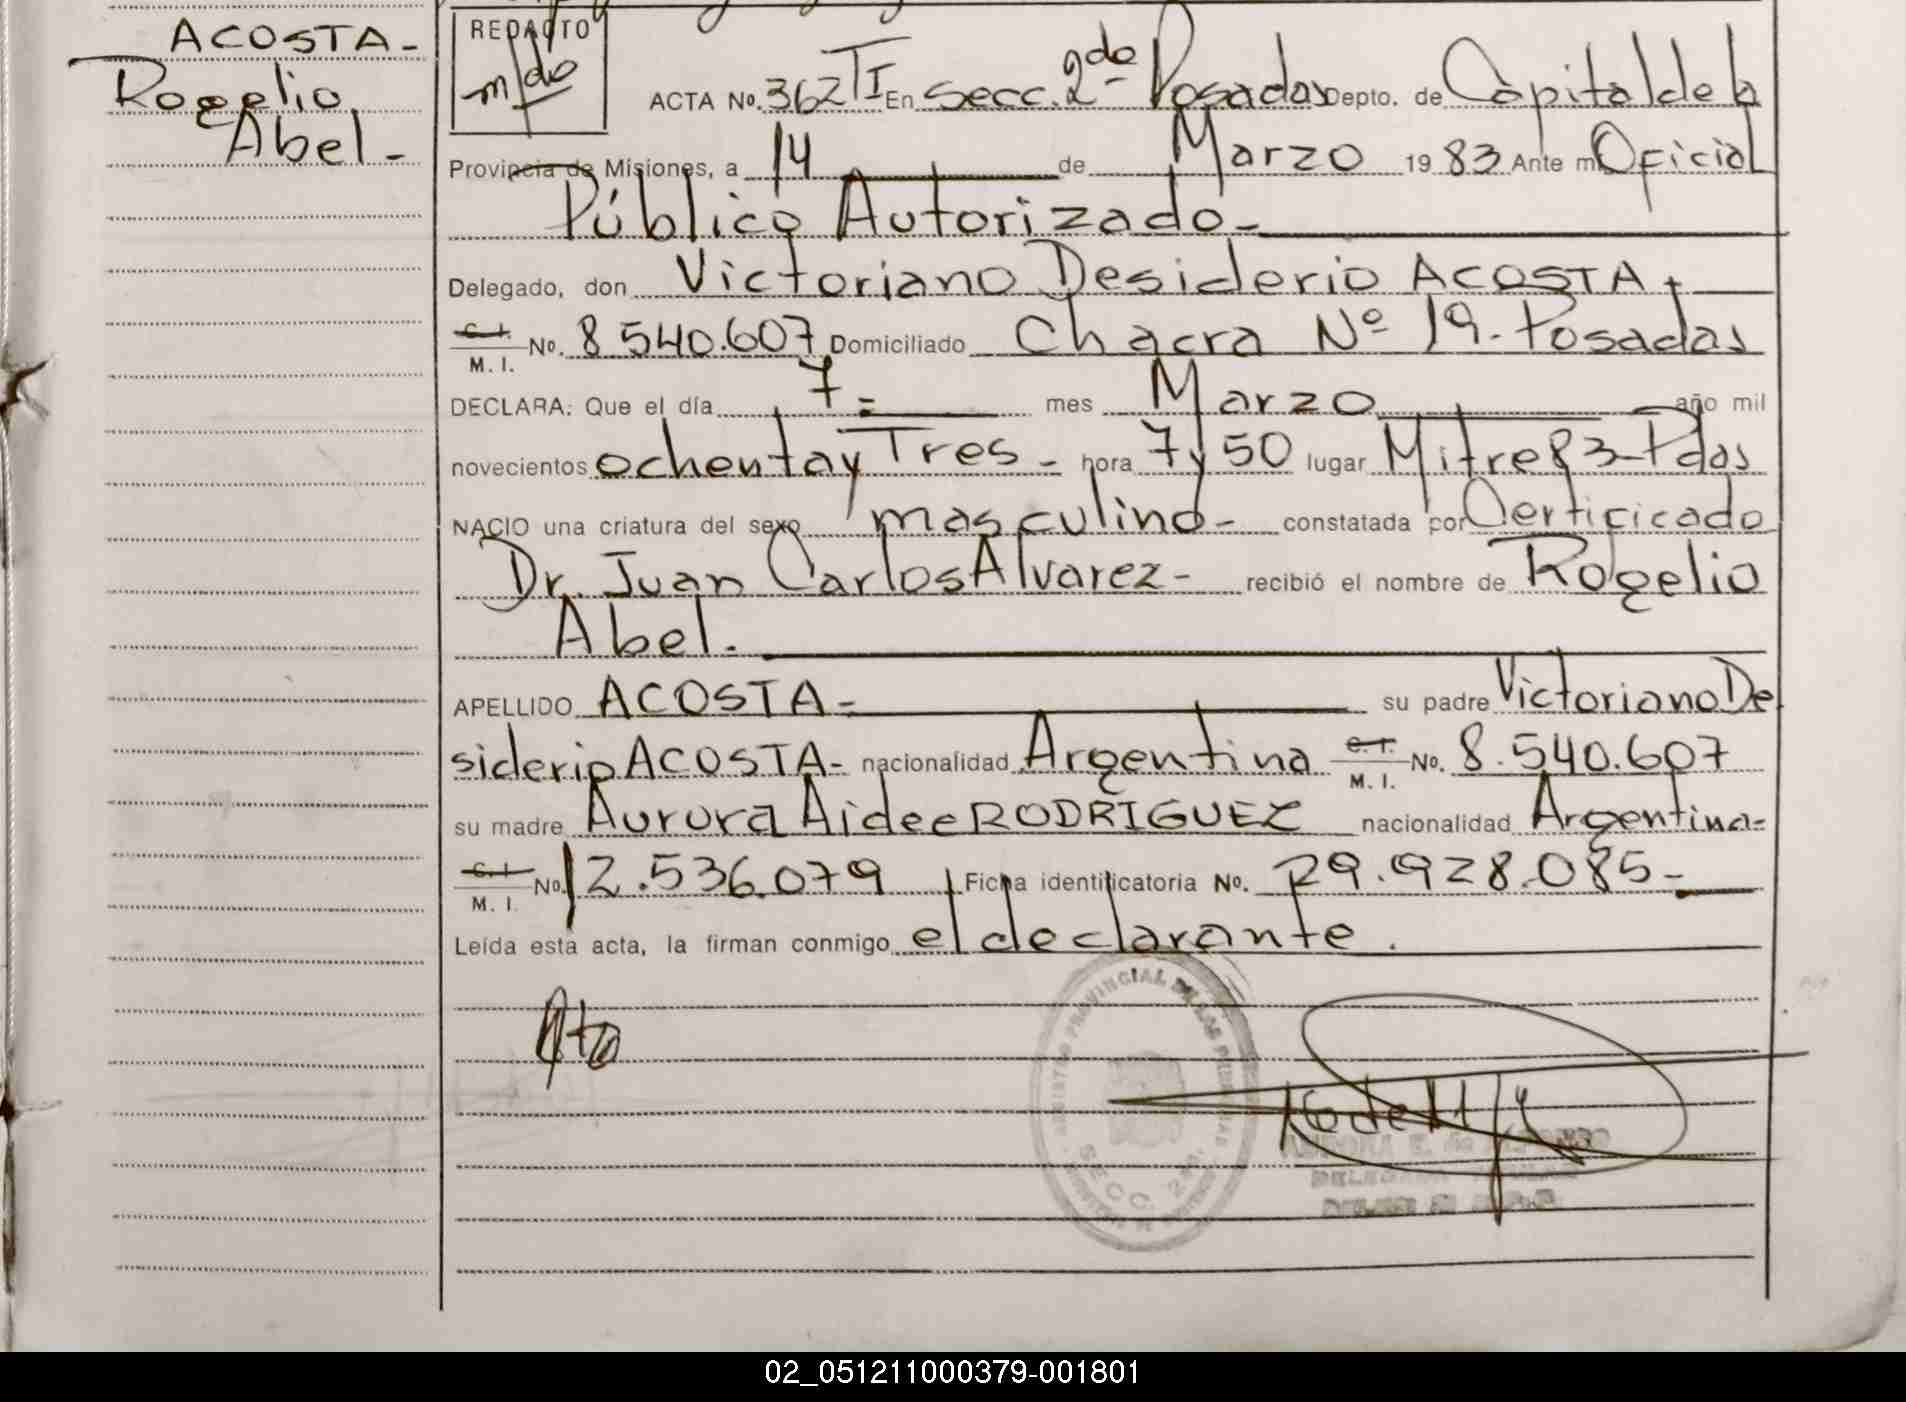 ACOSTA-
Rogelio
Abel-
REDACTO
m/do
ACTA No. 362 TI En Secc. 2da Posadas Depto. de Capital de la
Provincia de Misiones, a 14 de Marzo 1983 Ante mi Oficial
Público Autorizado-
Delegado, don Victoriano Desiderio ACOSTA.
C.I. M.I. No. 8540.607 Domiciliado Chacra Nº 19. Posadas
DECLARA: Que el día 7- mes Marzo año mil
novecientos ochenta y Tres- hora 7 y 50 lugar Mitre 83-Pdas
NACIO una criatura del sexo masculino- constatada por Certificado
Dr. Juan Carlos Alvarez- recibió el nombre de Rogelio
Abel.
APELLIDO ACOSTA- su padre Victoriano De
siderio ACOSTA- nacionalidad Argentina C.I. M.I. No. 8.540.607
su madre Aurora Aidee RODRIGUEZ nacionalidad Argentina-
C.I. M.I. No. 12.536.079 Ficha identificatoria No. 29.928.085-
Leída esta acta, la firman conmigo el declarante.
PROVINCIAL DE LAS PERSONAS
SECC. 2da.
02_051211000379-001801